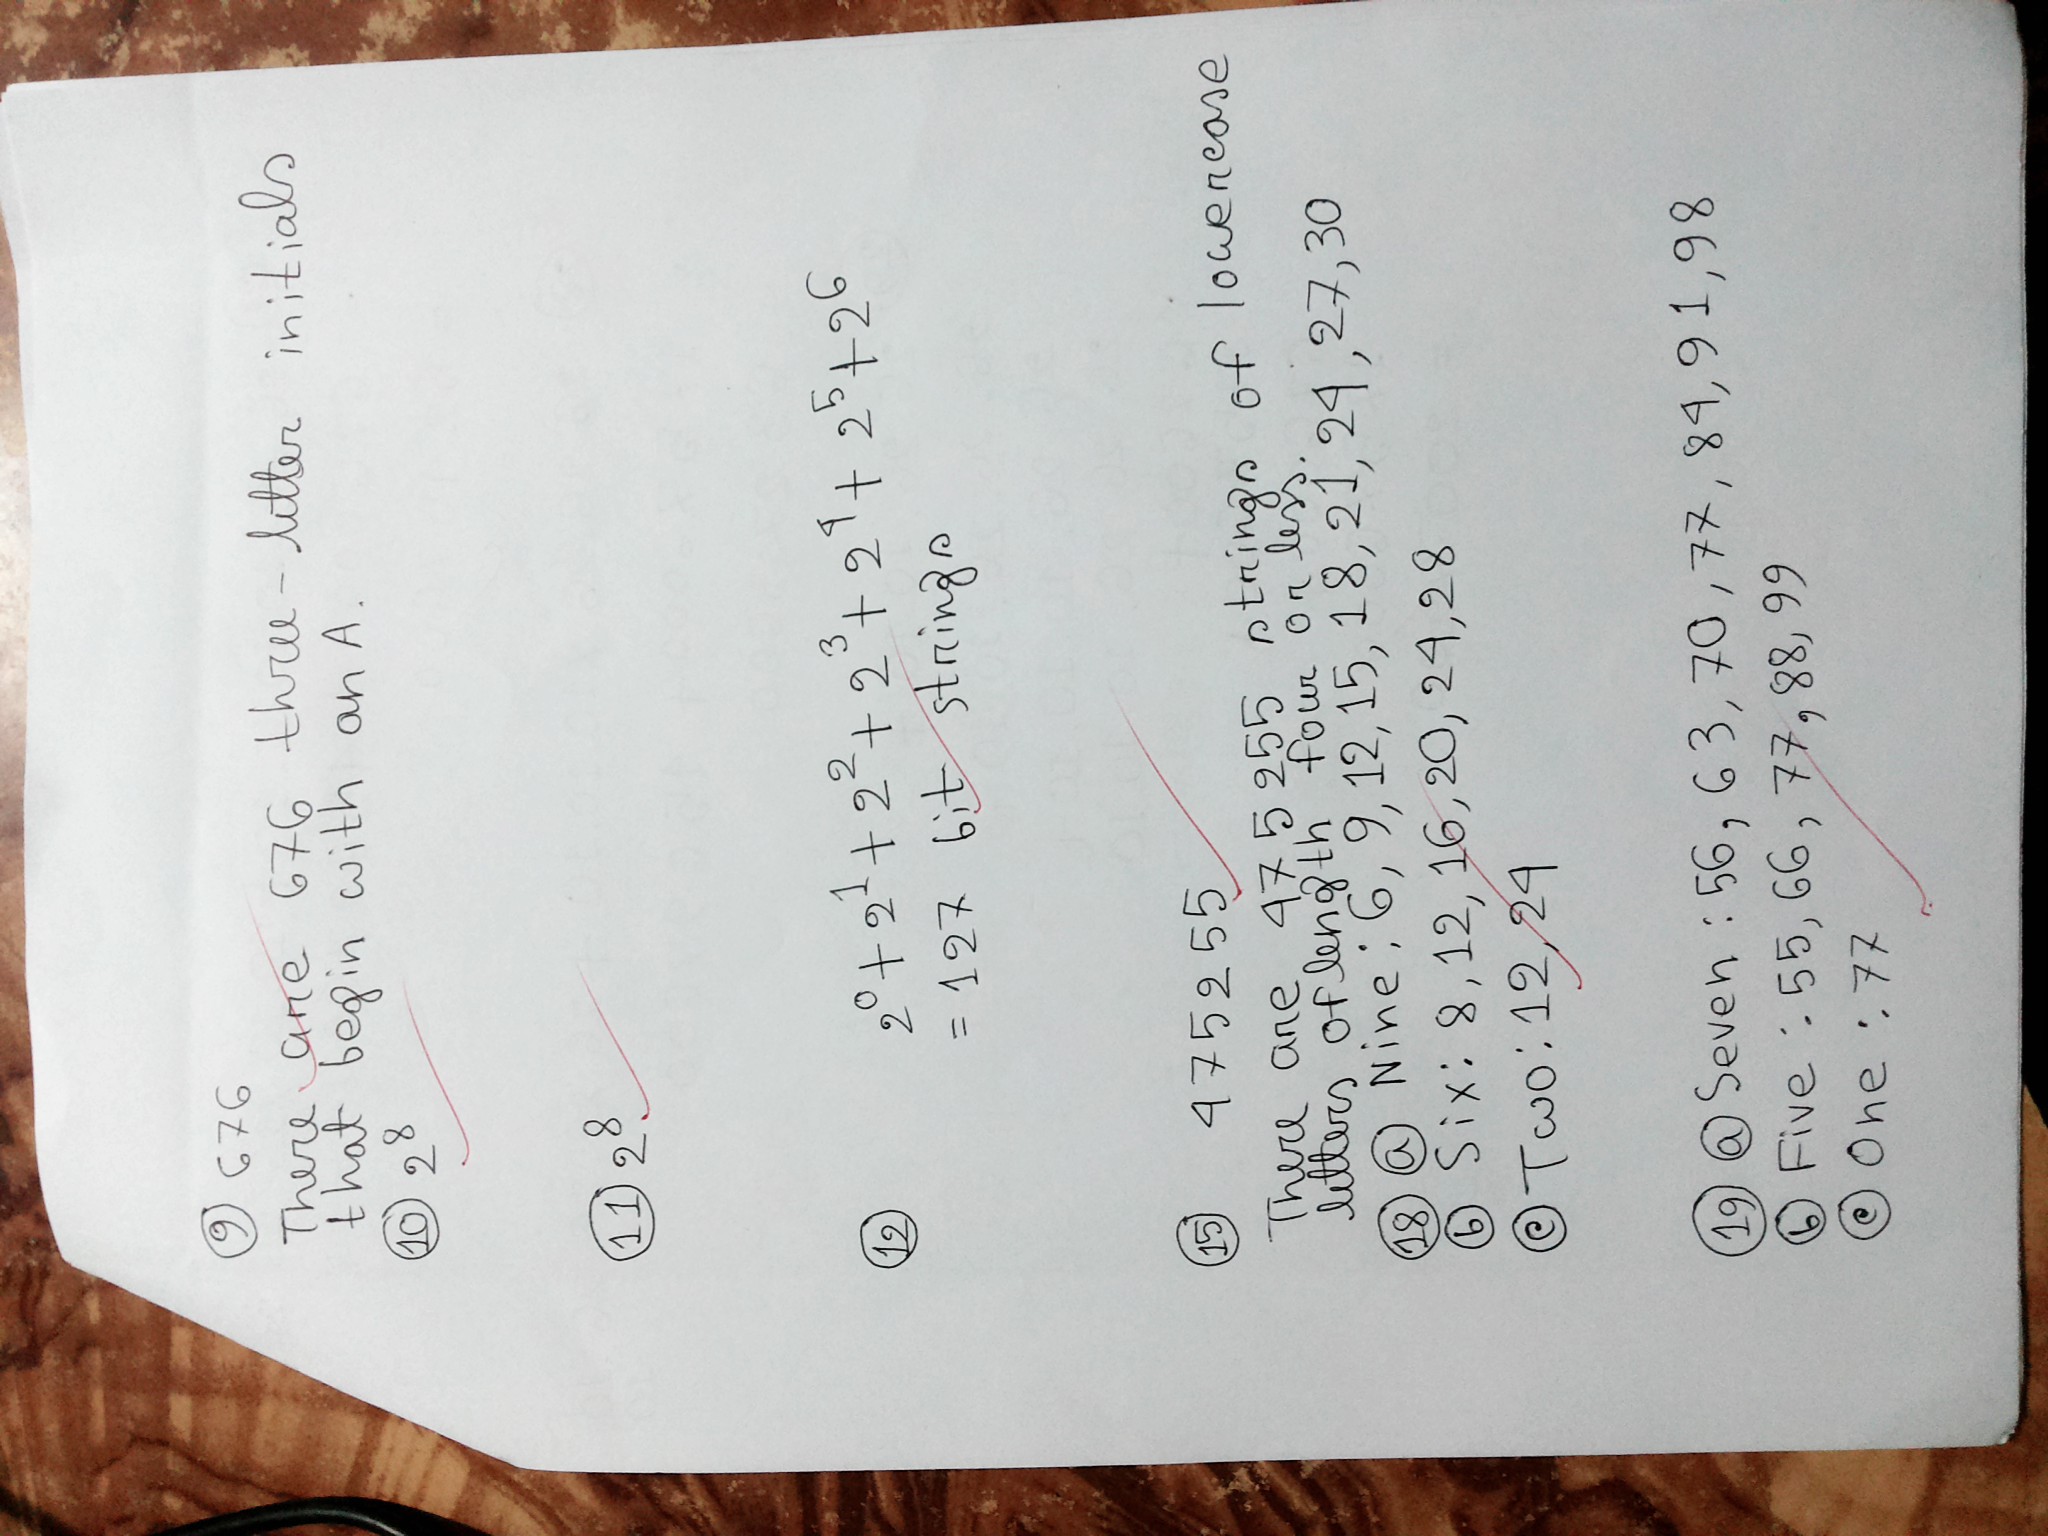 ⑨ 676
There are 676 three-letter initials
that begin with an A.
⑩ 2⁸
⑪ 2⁸
⑫ 2⁰+2¹+2²+2³+2⁴+2⁵+2⁶
= 127 bit strings
⑮ 475255
There are 475255 strings of lowercase
letters of length four or less.
⑱ ⓐ Nine : 6, 9, 12, 15, 18, 21, 24, 27, 30
ⓑ Six : 8, 12, 16, 20, 24, 28
ⓒ Two : 12, 24
⑲ ⓐ Seven : 56, 63, 70, 77, 84, 91, 98
ⓑ Five : 55, 66, 77, 88, 99
ⓒ One : 77